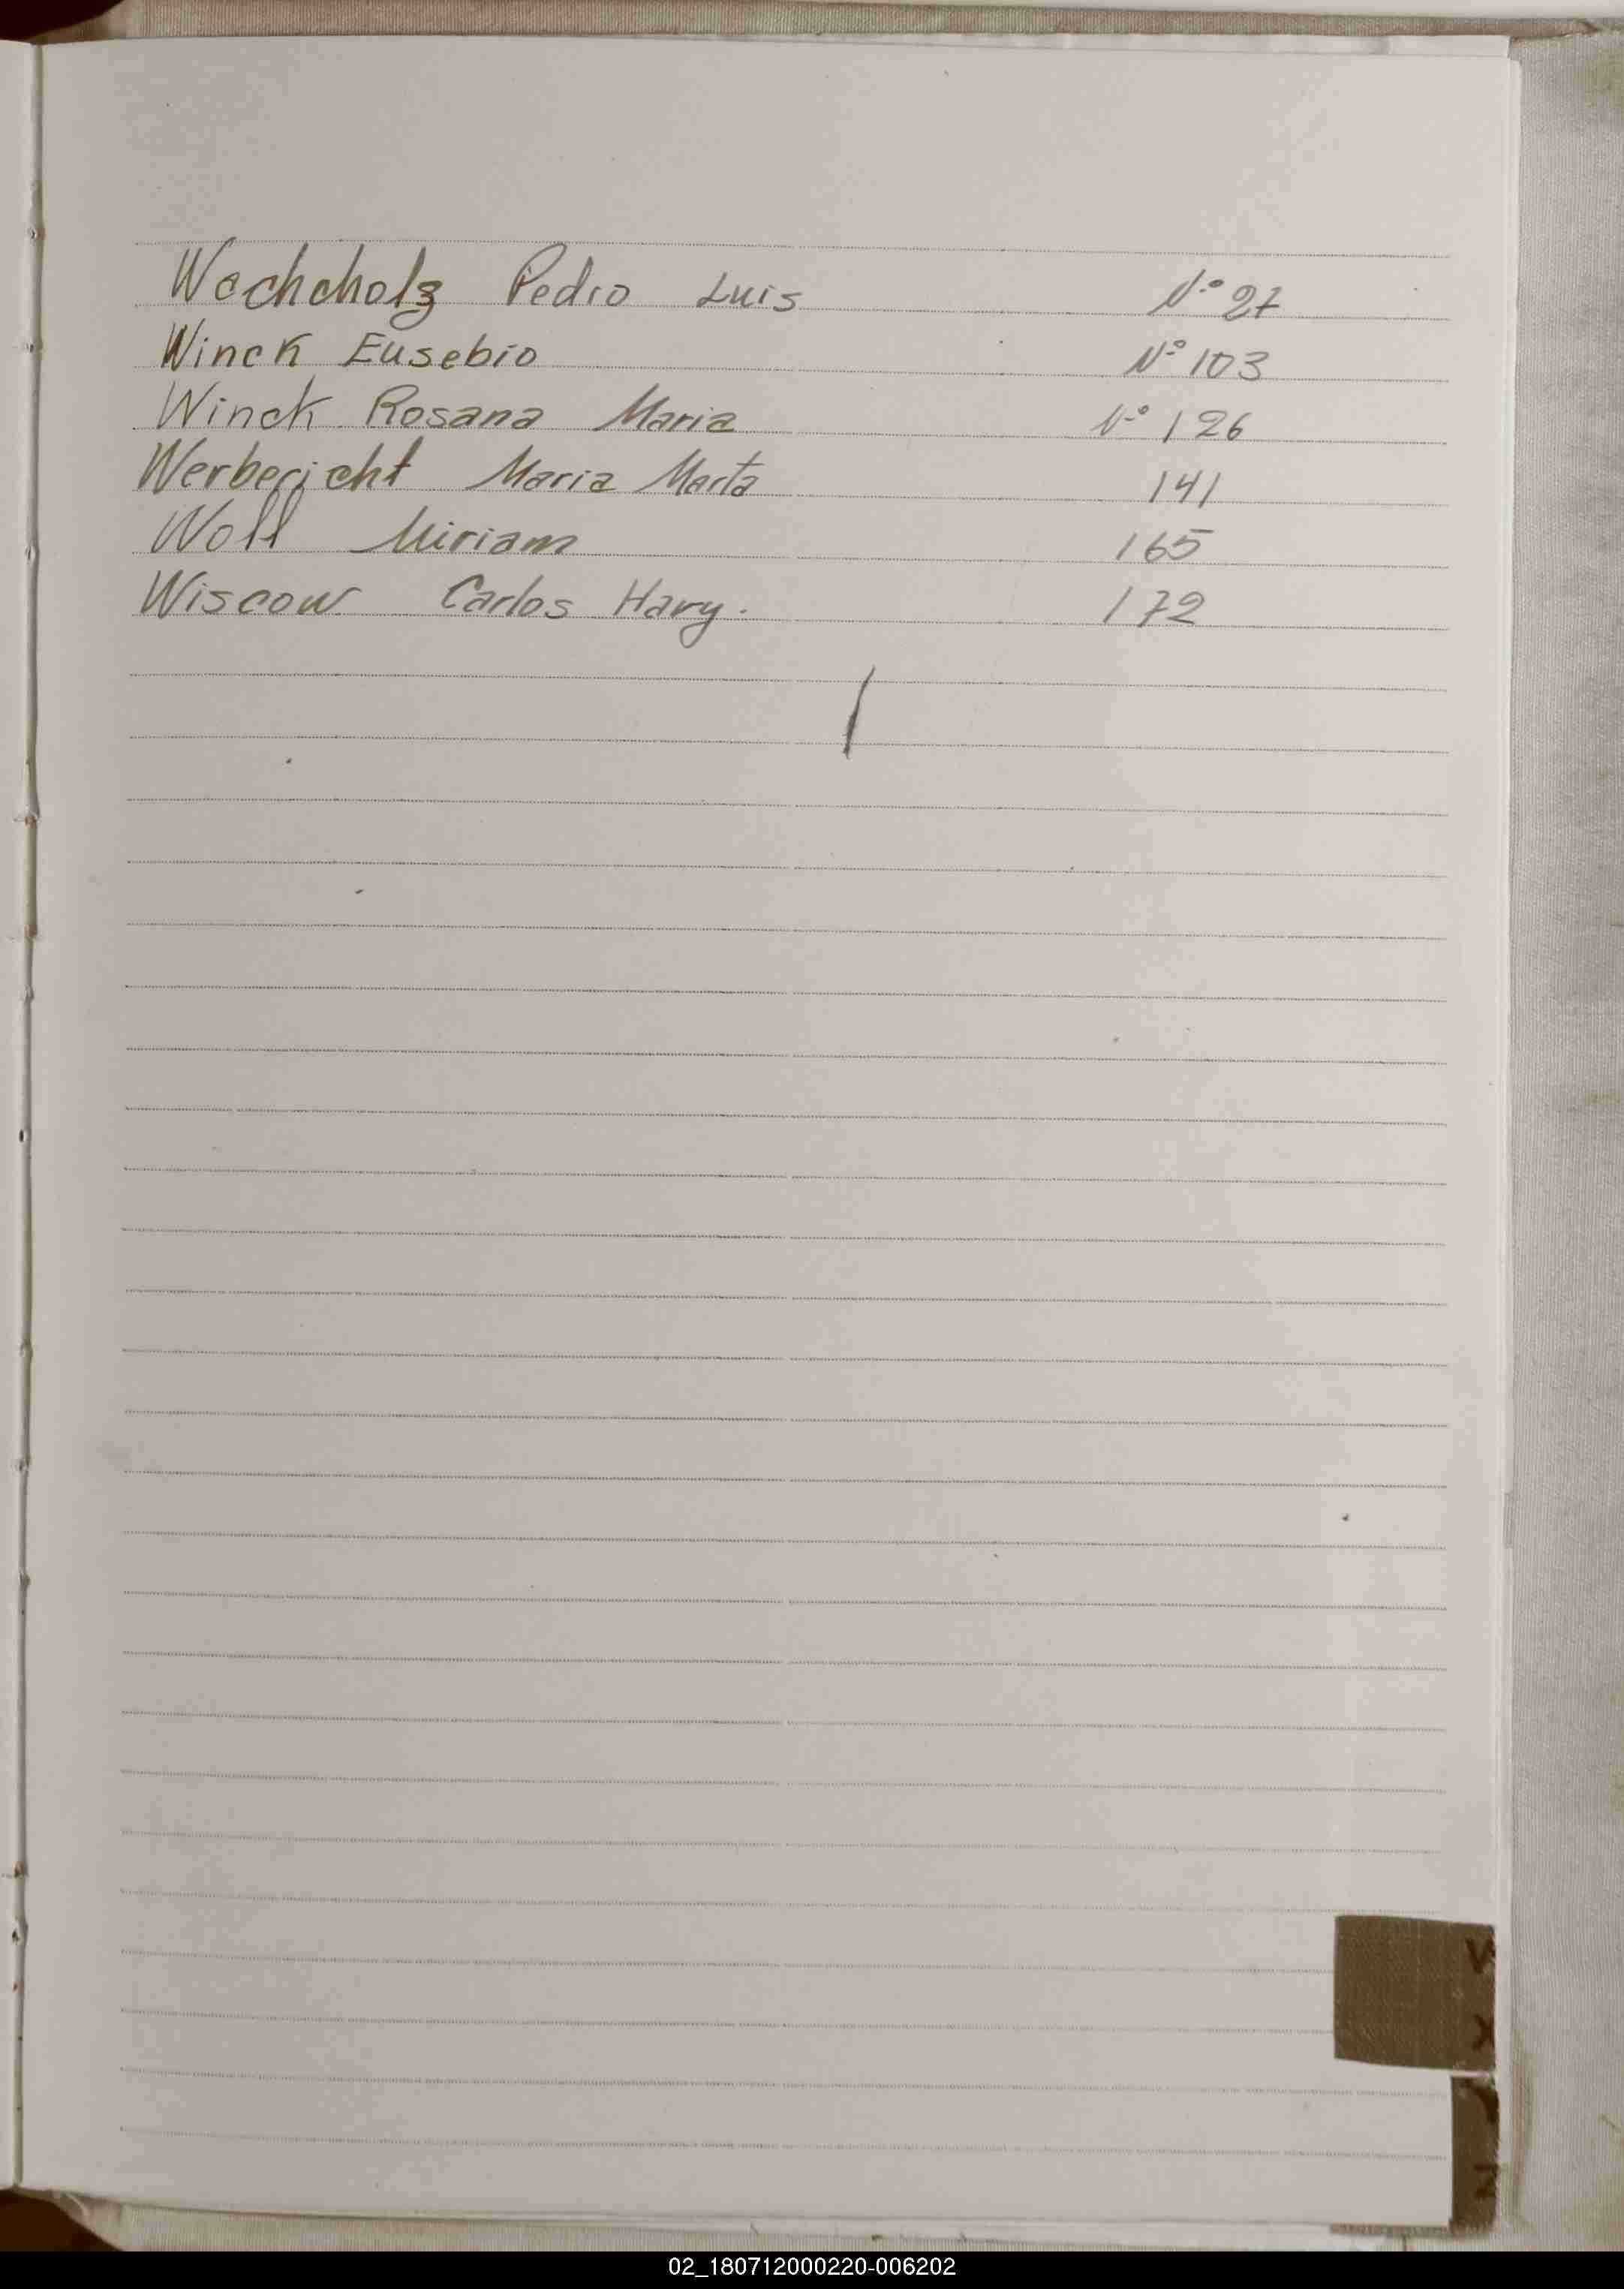 Wachcholz Pedro Luis Nº 27
Winck Eusebio Nº 103
Winck Rosana Maria Nº 126
Werbericht Maria Marta 141
Woll Miriam 165
Wiscow Carlos Hary. 172
V
X
Y
Z
02_180712000220-006202